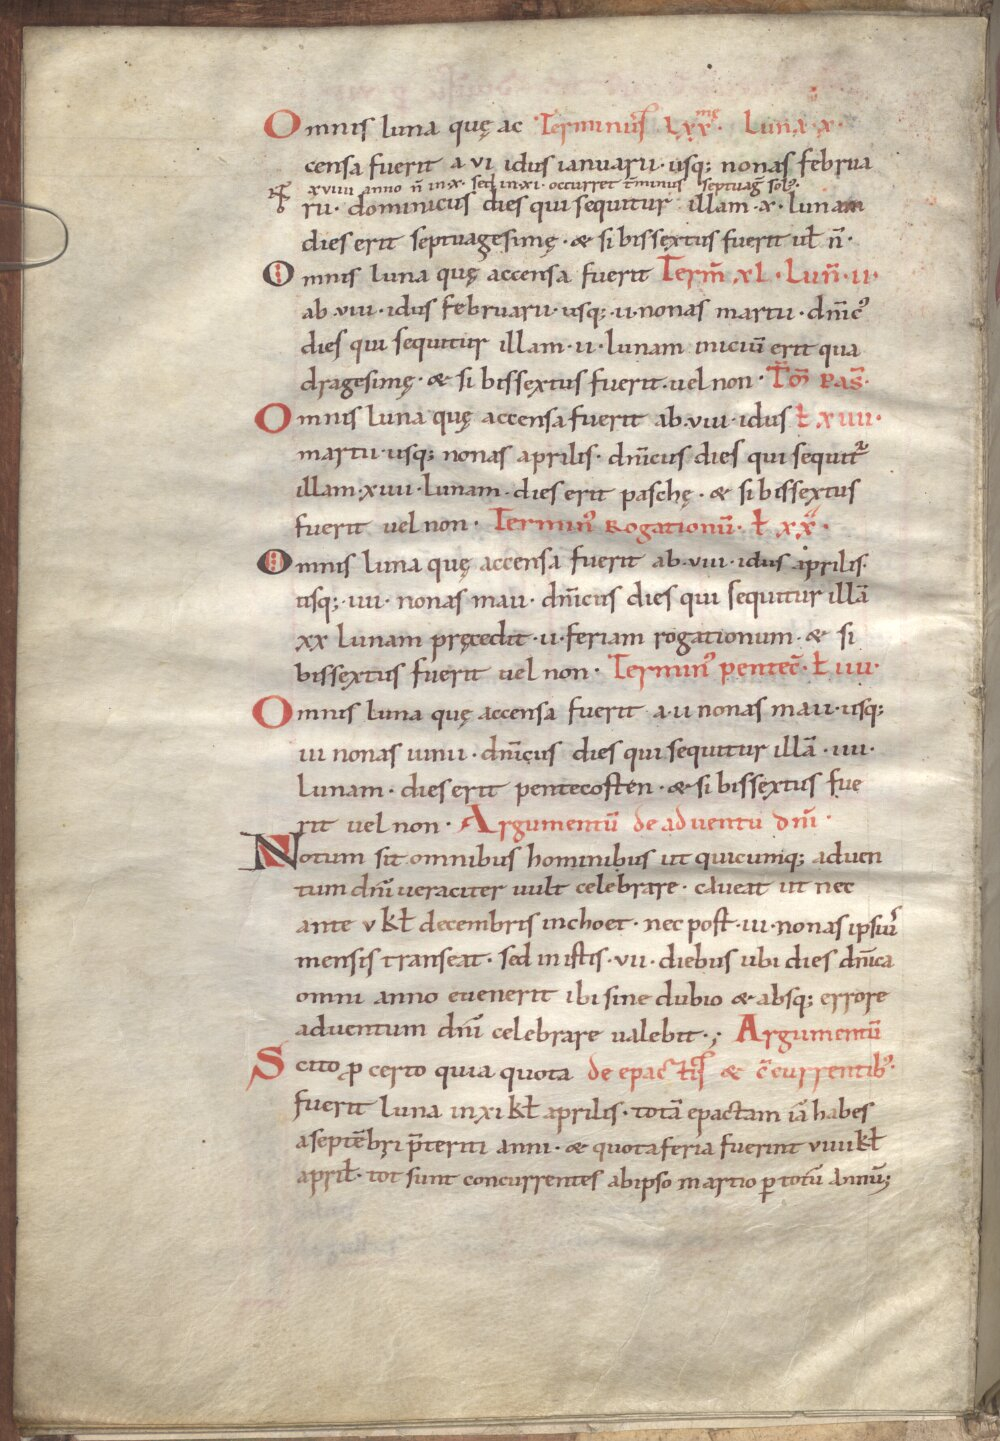 Omnis luna quę ac Terminus̄ Lxx.mę Luna x·
censa fuerit a vi idus ianuarii· usq; nonas februa
xviiii anno n̄ in·x· sed in·xi· occurret t̄minus septuaḡ sol᷒·
rii· dominicus dies qui sequitur illam·x·lunam
dies erit septuagesimę·& si bissextus fuerit ul̄ n̄·
Omnis luna quę accensa fuerit Term̄ xl· Lun̄·ii·
ab·viii·idus februarii·usq;·ii·nonas martii·dn̄ic᷒
dies qui sequitur illam·ii·lunam iniciū erit qua
dragesimę·& si bissextus fuerit·vel non· T̄m̄ pas̄·
Omnis luna quę accensa fuerit ab·viii·idus ł xiiii·
martii·usq; nonas aprilis· dn̄icus dies qui sequit᷑
illam·xiiii·lunam·dies erit paschę·& si bissextus
fuerit vel non· Termin᷒ Rogationū· ł xx·
Omnis luna quę accensa fuerit ab·viii·idus aprilis·
usq;·iiii·nonas maii·dn̄icus dies qui sequitur illā
xx lunam pręcedit·ii·feriam rogationum·& si
bissextus fuerit vel non· Termin᷒ pentec̄·ł iiii·
Omnis luna quę accensa fuerit a·ii nonas maii·usq;
iii nonas iunii·dn̄icus dies qui sequitur illā·iiii·
Lunam·dies erit pentecosten·& si bissextus fue
rit vel non· Argumentū de adventu dn̄i·
Notum sit omnibus hominibus ut quicunq; aduen
tum dn̄i veraciter vult celebrare·caveat ut nec
ante v kł decembris inchoet·nec post·iii·nonas ipsius̄
mensis transeat·sed in istis·vii·diebus ubi dies dn̄ica
omni anno evenerit ibi sine dubio & absq; errore
adventum dn̄i celebrare valebit·; Argumentū
Scito ꝓ certo quia quota de epactis & c̄currentib᷒·
fuerit luna in xi kł aprilis·totā epactam iā habes
a septēbri p̄teriti anni·& quota feria fuerint viiii kł
april̄·tot sunt concurrentes ab ipso martio ꝑ totū annū;